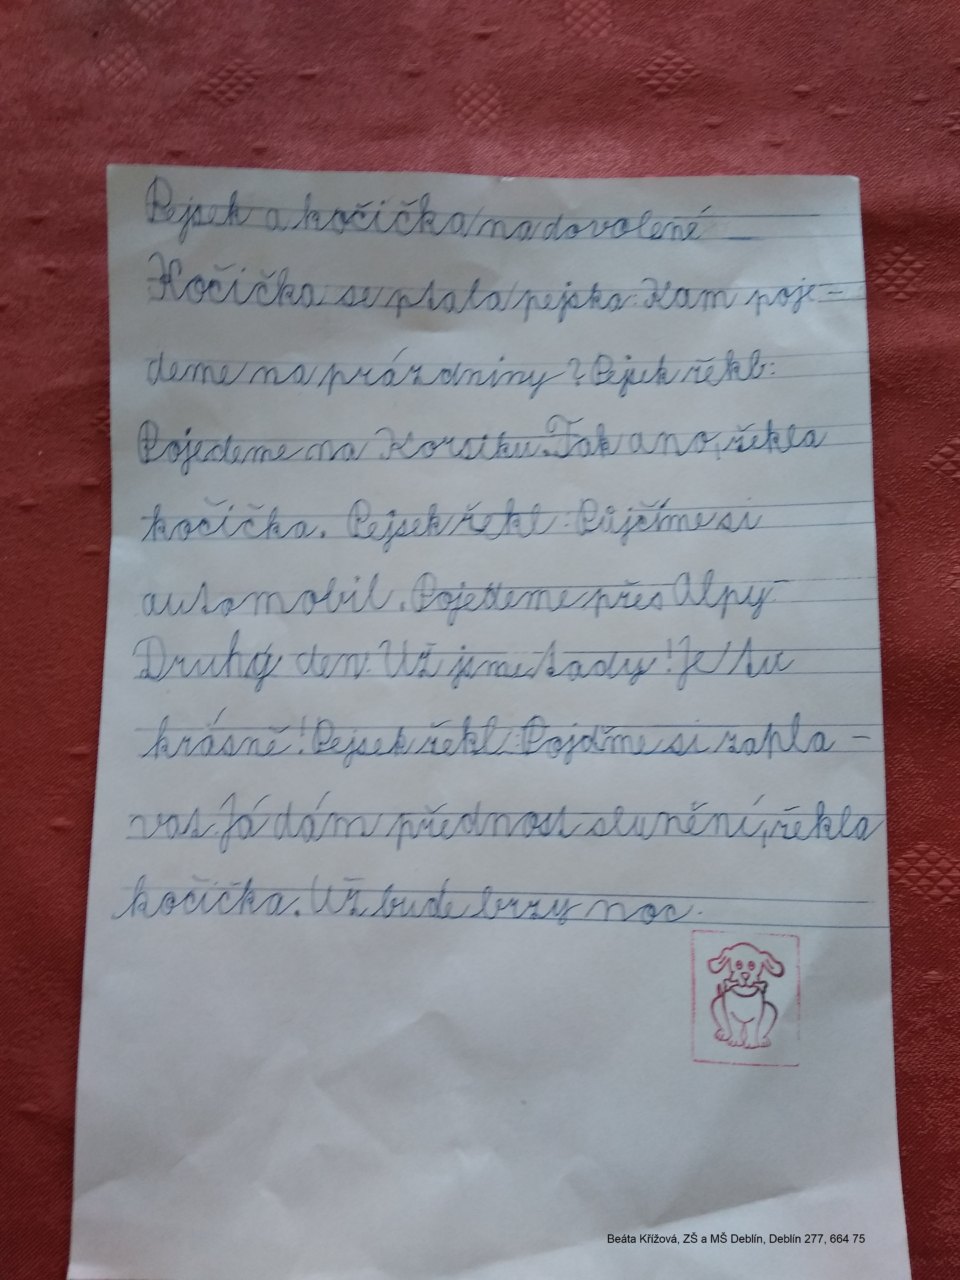 Pejsek a kočička na dovolené
Kočička se ptala pejska: Kam poje-
deme na prázdniny? Pejsek řekl:
Pojedeme na Korsiku. Tak ano, řekla
kočička. Pejsek řekl: Půjčíme si
automobil. Pojedeme přes Alpy
Druhý den. Už jsme tady! Je tu
krásně! Pejsek řekl: Pojďme si zapla-
vat. Já dám přednost slunění, řekla
kočička. Už bude brzy noc.
Beáta Křížová, ZŠ a MŠ Deblín, Deblín 277, 664 75